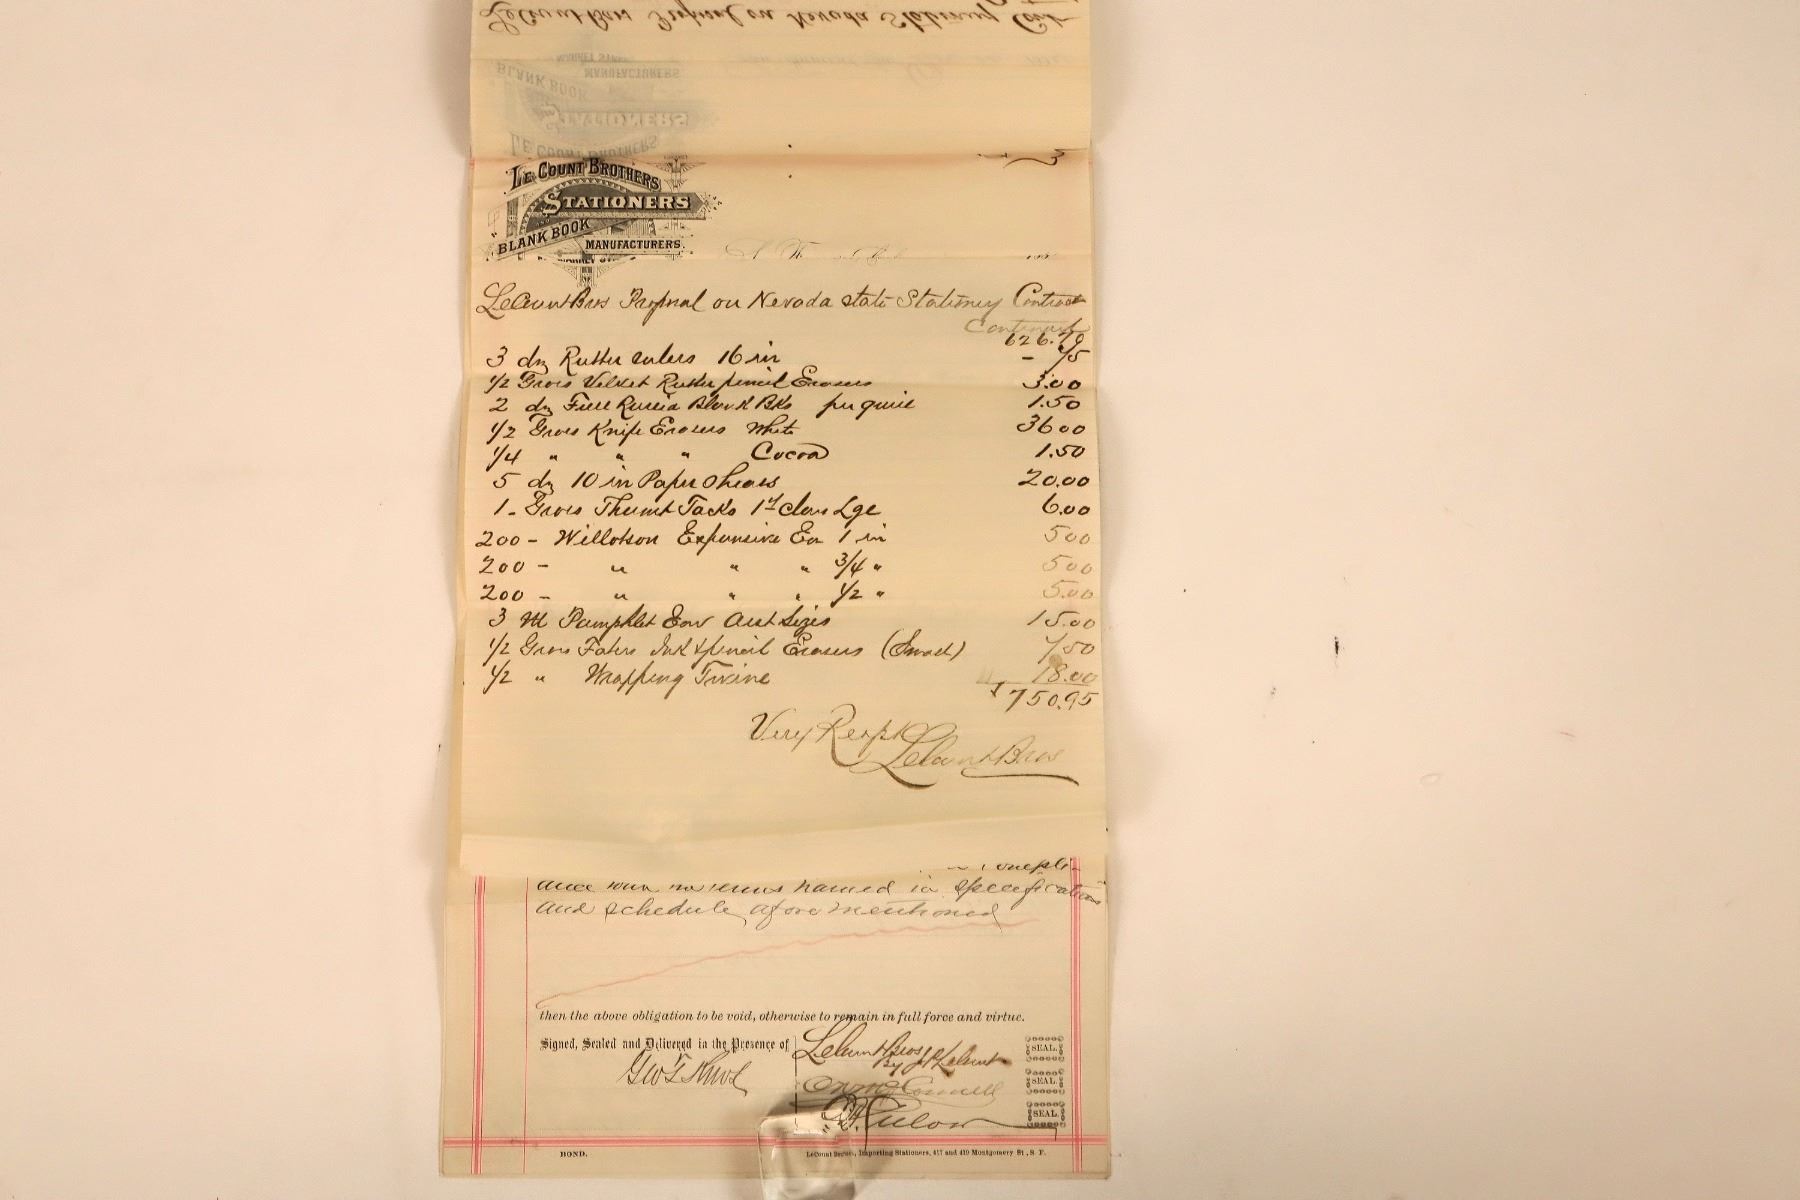 LeCount Bros Proposal on Nevada Stationery Cont
MARKET STREET
MANUFACTURERS
BLANK BOOK
STATIONERS
LE COUNT BROTHERS
LE COUNT BROTHERS
STATIONERS
AND
BLANK BOOK
MANUFACTURERS.
MARKET STREET
LeCount Bros Proposal on Nevada state Stationery Contract
Continued
626.70
3 dz Rubber rulers 16 in - 75
1/2 Gross Velvet Rubber pencil Erasers 3.00
2 dz Full Russia Blank Bks per quire 1.50
1/2 Gross Knife Erasers White 3600
1/4 " " " Cocoa 1.50
5 dz 10 in Paper Shears 20.00
1 - Gross Thumb Tacks 1st class Lge 6.00
200 - Expansive En 1 in 500
200 - " " " 3/4 " 500
200 - " " " 1/2 " 5.00
3 M Pamphlet Env Asst Sizes 15.00
1/2 Gross Fabers Ink & pencil Erasers (Small) 7.50
1/2 " Wrapping Twine 18.00
$750.95
Very Respt
LeCount Bros
named in specifications
and schedule afore mentioned
then the above obligation to be void, otherwise to remain in full force and virtue.
Signed, Sealed and Delivered in the Presence of
LeCount Bros
By J P LeCount
SEAL.
SEAL.
SEAL.
BOND.
LeCount Bros., Importing Stationers, 417 and 419 Montgomery St., S. F.